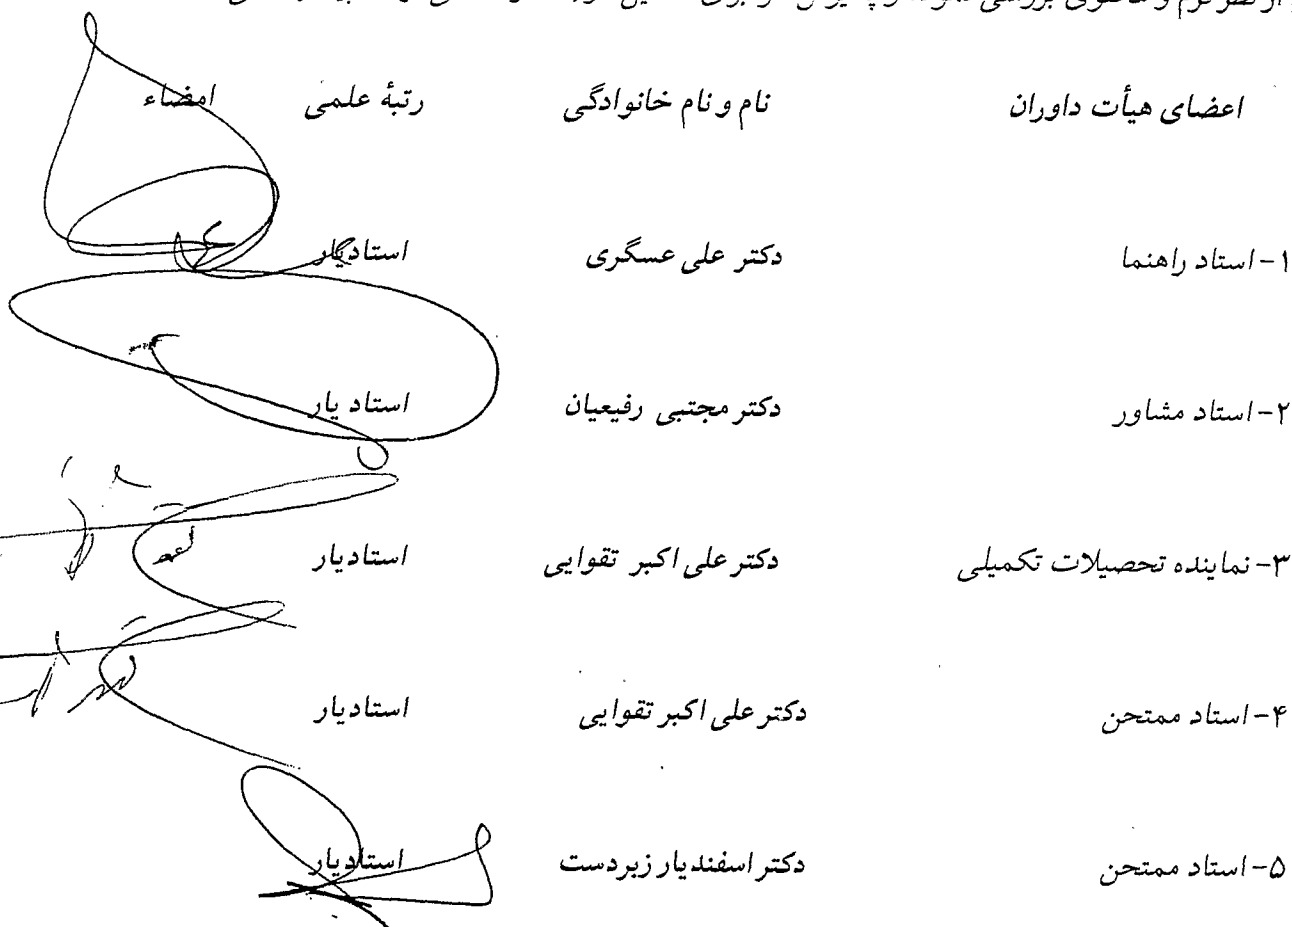 اعضای هیأت داوران نام و نام خانوادگی رتبهٔ علمی امضاء
۱- استاد راهنما دکتر علی عسگری استادیار
۲- استاد مشاور دکتر مجتبی رفیعیان استاد یار
۳- نماینده تحصیلات تکمیلی دکتر علی اکبر تقوایی استادیار
۴- استاد ممتحن دکتر علی اکبر تقوایی استادیار
۵- استاد ممتحن دکتر اسفندیار زبردست استادیار